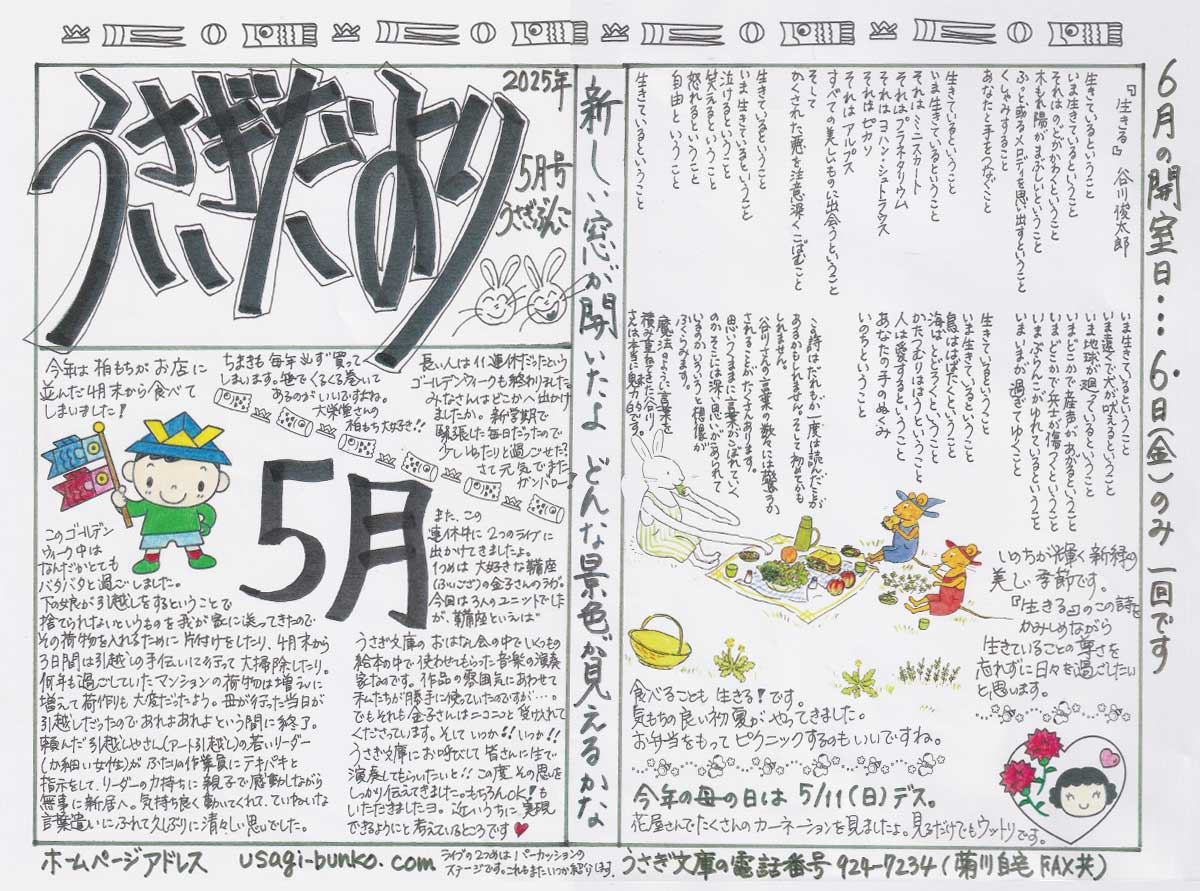 うさぎだより
2025年
5月号
うさぎぶんこ
新しい窓が開いたよ どんな景色が見えるかな
6月の開室日・・・6日(金)のみ 一回です
『生きる』 谷川俊太郎
生きているということ
いま生きているということ
それはのどがかわくということ
木もれ陽がまぶしいということ
ふっと或るメロディを思い出すということ
くしゃみすること
あなたと手をつなぐこと
生きているということ
いま生きているということ
それはミニスカート
それはプラネタリウム
それはヨハン・シュトラウス
それはピカソ
それはアルプス
すべての美しいものに出会うということ
そして
かくされた悪を注意深くこばむこと
生きているということ
いま生きているということ
泣けるということ
笑えるということ
怒れるということ
自由ということ
生きているということ
いま生きているということ
いま遠くで犬が吠えるということ
いま地球が廻っているということ
いまどこかで産声があがるということ
いまどこかで兵士が傷つくということ
いまぶらんこがゆれているということ
いまいまが過ぎてゆくこと
生きているということ
いま生きているということ
鳥ははばたくということ
海はとどろくということ
かたつむりははうということ
人は愛するということ
あなたの手のぬくみ
いのちということ
この詩はだれもが一度は読んだことが
あるかもしれません。そして初めてかも
しれません。
谷川さんの言葉の数々には驚か
されることがたくさんあります。
思いつくままに言葉がこぼれていく
のか、そこには深い思いがこめられて
いるのかいろいろと想像が
ふくらみます。
魔法のように言葉を
積み重ねてきた谷川
さんは本当に魅力的です。
いのちが輝く新緑の
美しい季節です。
『生きる』のこの詩を
かみしめながら
生きていることの尊さを
忘れずに日々を過ごしたい
と思います。
食べることも生きる!です。
気もちの良い初夏がやってきました。
お弁当をもってピクニックするのもいいですね。
今年の母の日は 5/11(日)デス。
花屋さんでたくさんのカーネーションを見ましたよ。見るだけでもウットリです。
今年は柏もちがお店に
並んだ4月末から食べて
しまいました!
ちまきも毎年必ず買って
しまいます。笹でくるくる巻いて
あるのがいいですね。
大栄堂さんの
柏もち大好き!!
長い人は11連休だったという
ゴールデンウィークも終わりました。
みなさんはどこかへ出かけ
ましたか。新学期で
緊張した毎日だったので
少しゆったりと過ごせた?
さて元気でまた
ガンバロー!
5月
このゴールデン
ウィーク中は
なんだかとても
バタバタと過ごしました。
下の娘が引越しをするということで
捨てられないというものを我が家に送ってきたので
その荷物を入れるために片付けをしたり、4月末から
3日間は引越しの手伝いに行って大掃除したり。
何年も過ごしていたマンションの荷物は増えに
増えて荷作りも大変だったよう。母が行った当日が
引越しだったのであれよあれよという間に終了。
頼んだ引越しやさん(アート引越し)の若いリーダー
(か細い女性)がふたりの作業員にテキパキと
指示をして、リーダーの力持ちに親子で感動しながら
無事に新居へ。気持ち良く動いてくれて、ていねいな
言葉遣いにふれて久しぶりに清々しい思いでした。
また、この
連休中に2つのライブに
出かけてきましたよ。
1つめは大好きな鞴座
(ふいござ)の金子さんのライブ。
今回は3人のユニットでした
が、鞴座といえば
うさぎ文庫のおはなし会の中でいくつもの
絵本の中で使わせてもらった音楽の演奏
家なのです。作品の雰囲気にあわせて
私たちが勝手に使っていたのですが…。
でもそれも金子さんはニコニコと受け入れて
くださっています。そしていつか!!いつか!!
うさぎ文庫にお呼びして皆さんに生で
演奏してもらいたいと!!この度、その思いを
しっかり伝えてきました。もちろんOK!も
いただきましたヨ。近いうちに実現
できるようにと考えているところです♥
ホームページアドレス usagi-bunko.com
ライブの2つめはパーカッションの
ステージです。これもまたいつか紹介します。
うさぎ文庫の電話番号 924-7234(菊川自宅 FAX共)